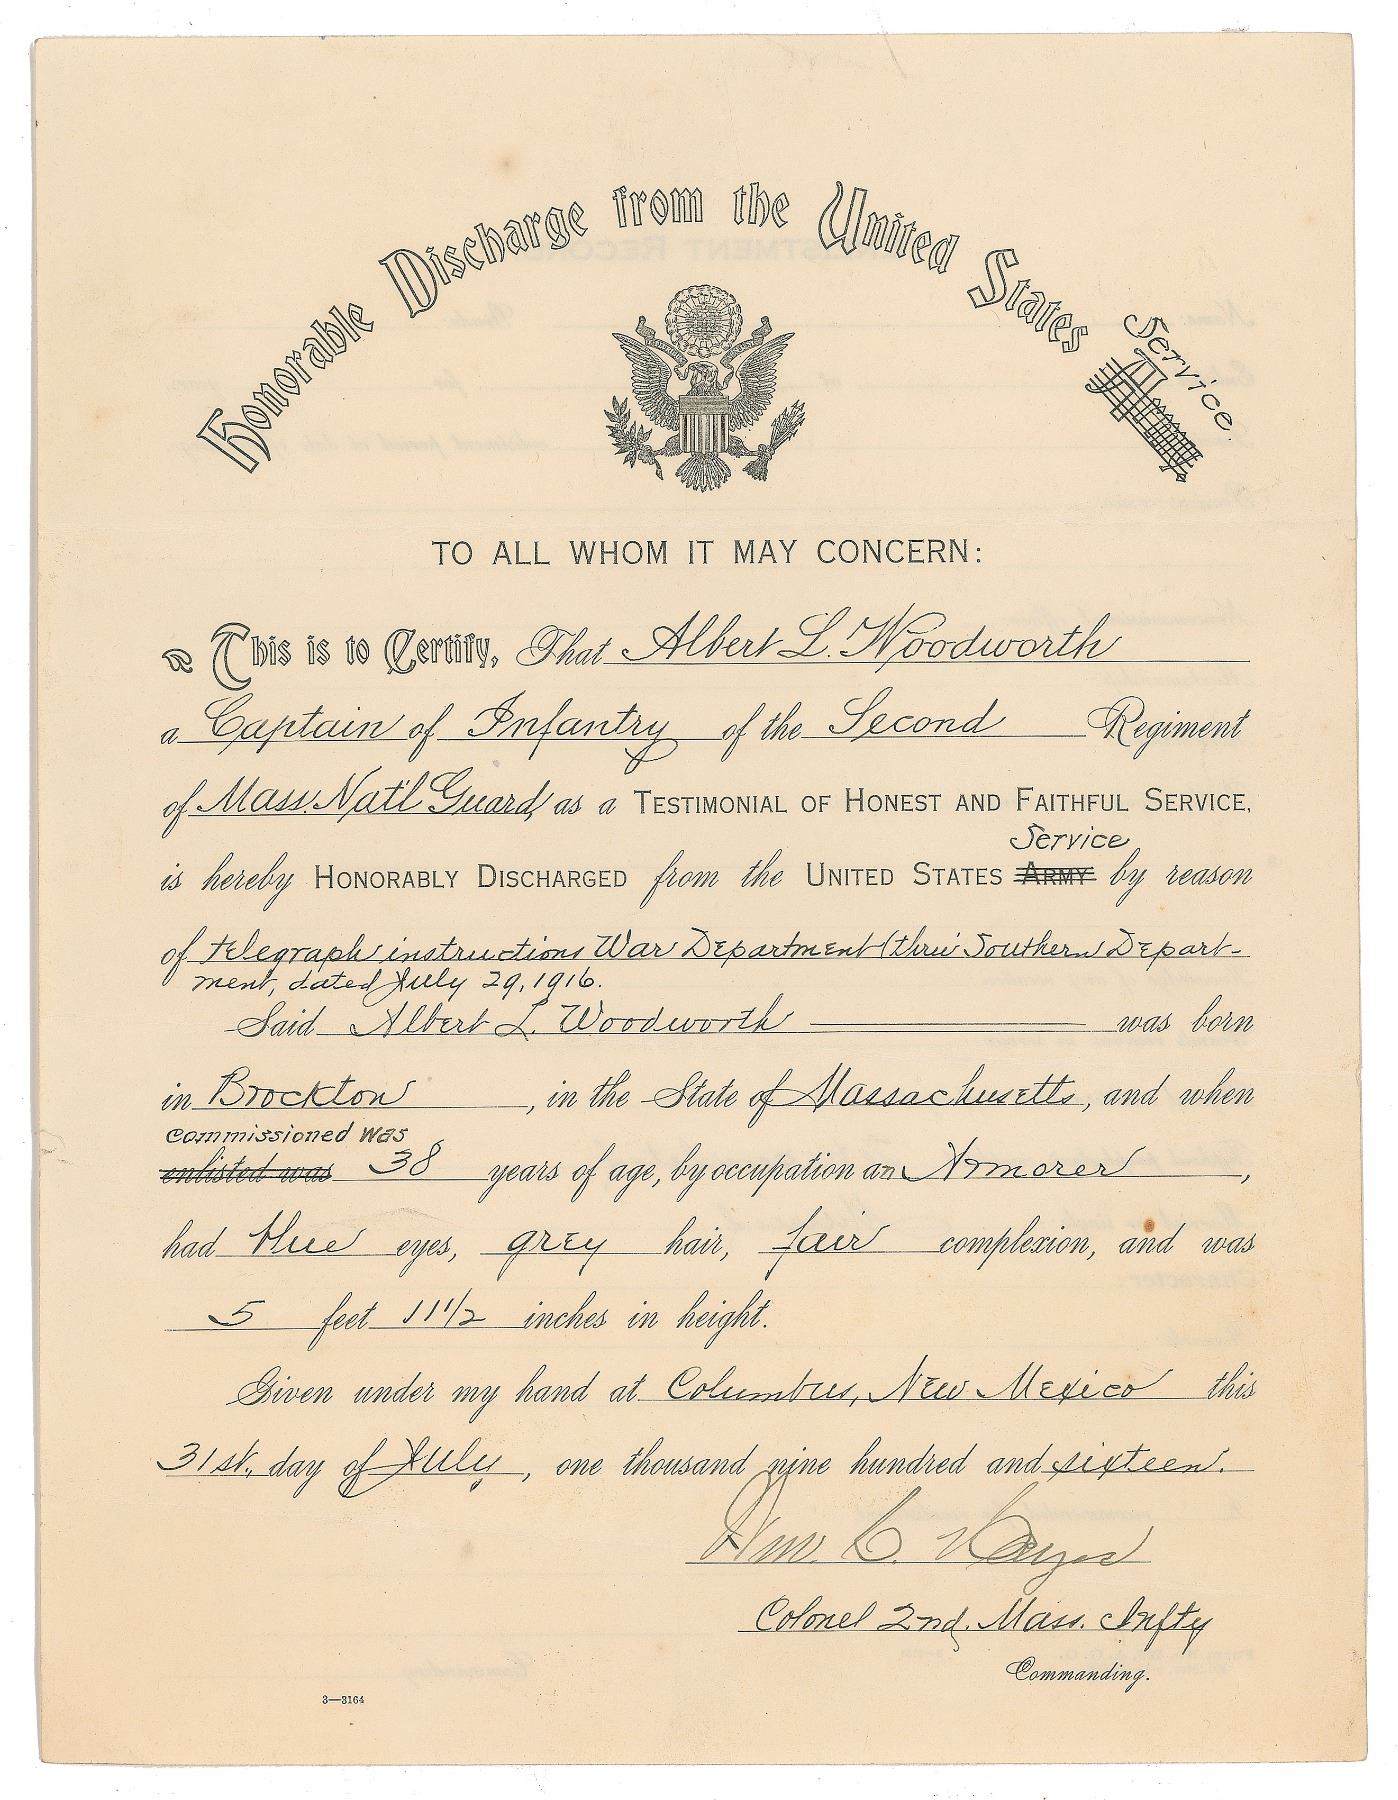 Honorable Discharge from the United States Army
Service.
TO ALL WHOM IT MAY CONCERN:
This is to Certify, That Albert L. Woodworth
a Captain of Infantry of the Second Regiment
of Mass. Nat'l Guard, as a TESTIMONIAL OF HONEST AND FAITHFUL SERVICE,
Service
is hereby HONORABLY DISCHARGED from the UNITED STATES ARMY by reason
of telegraph instructions War Department (thru Southern Depart-
ment, dated July 29, 1916.
Said Albert L. Woodworth was born
in Brockton, in the State of Massachusetts, and when
commissioned was
enlisted was 38 years of age, by occupation an Armorer,
had blue eyes, grey hair, fair complexion, and was
5 feet 11 1/2 inches in height.
Given under my hand at Columbus, New Mexico this
31st, day of July, one thousand nine hundred and sixteen.
Wm. C. Hayes
Colonel 2nd. Mass. Infty
Commanding.
3—3164